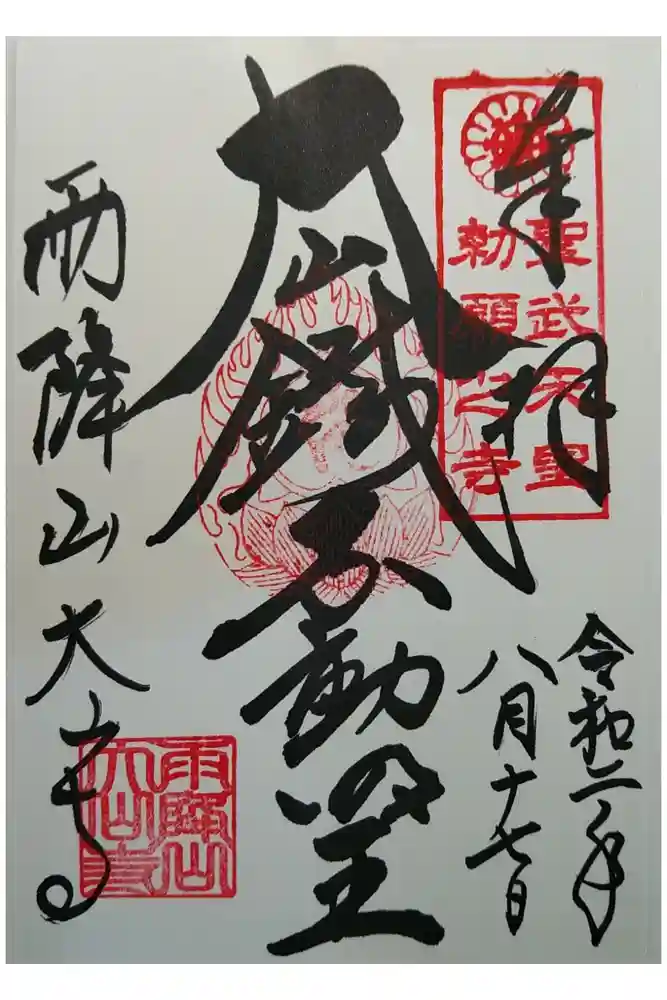 奉拝
聖武天皇
勅願之寺
令和二年
八月十七日
大山鐵不動
雨降山大寺
雨降山
大山寺